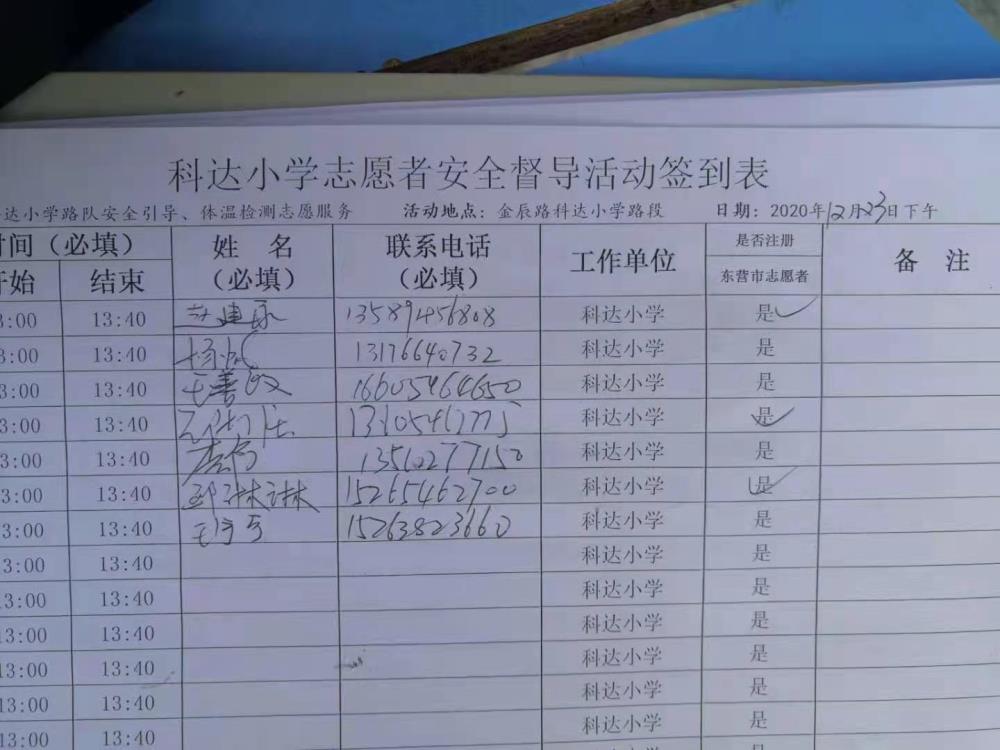 科达小学志愿者安全督导活动签到表
达小学路队安全引导、体温检测志愿服务 活动地点：金辰路科达小学路段 日期：2020年12月23日下午
时间（必填） 姓 名（必填） 联系电话（必填） 工作单位 是否注册东营市志愿者 备 注
开始 结束
3:00 13:40 赵建永 13589456808 科达小学 是
3:00 13:40 13176640732 科达小学 是
3:00 13:40 王善政 16605464650 科达小学 是
3:00 13:40 科达小学 是
3:00 13:40 13510277150 科达小学 是
3:00 13:40 邱琳琳 15265462700 科达小学 是
3:00 13:40 15263823660 科达小学 是
3:00 13:40 科达小学 是
13:00 13:40 科达小学 是
13:00 13:40 科达小学 是
13:00 13:40 科达小学 是
13:00 13:40 科达小学 是
13:00 13:40 科达小学 是